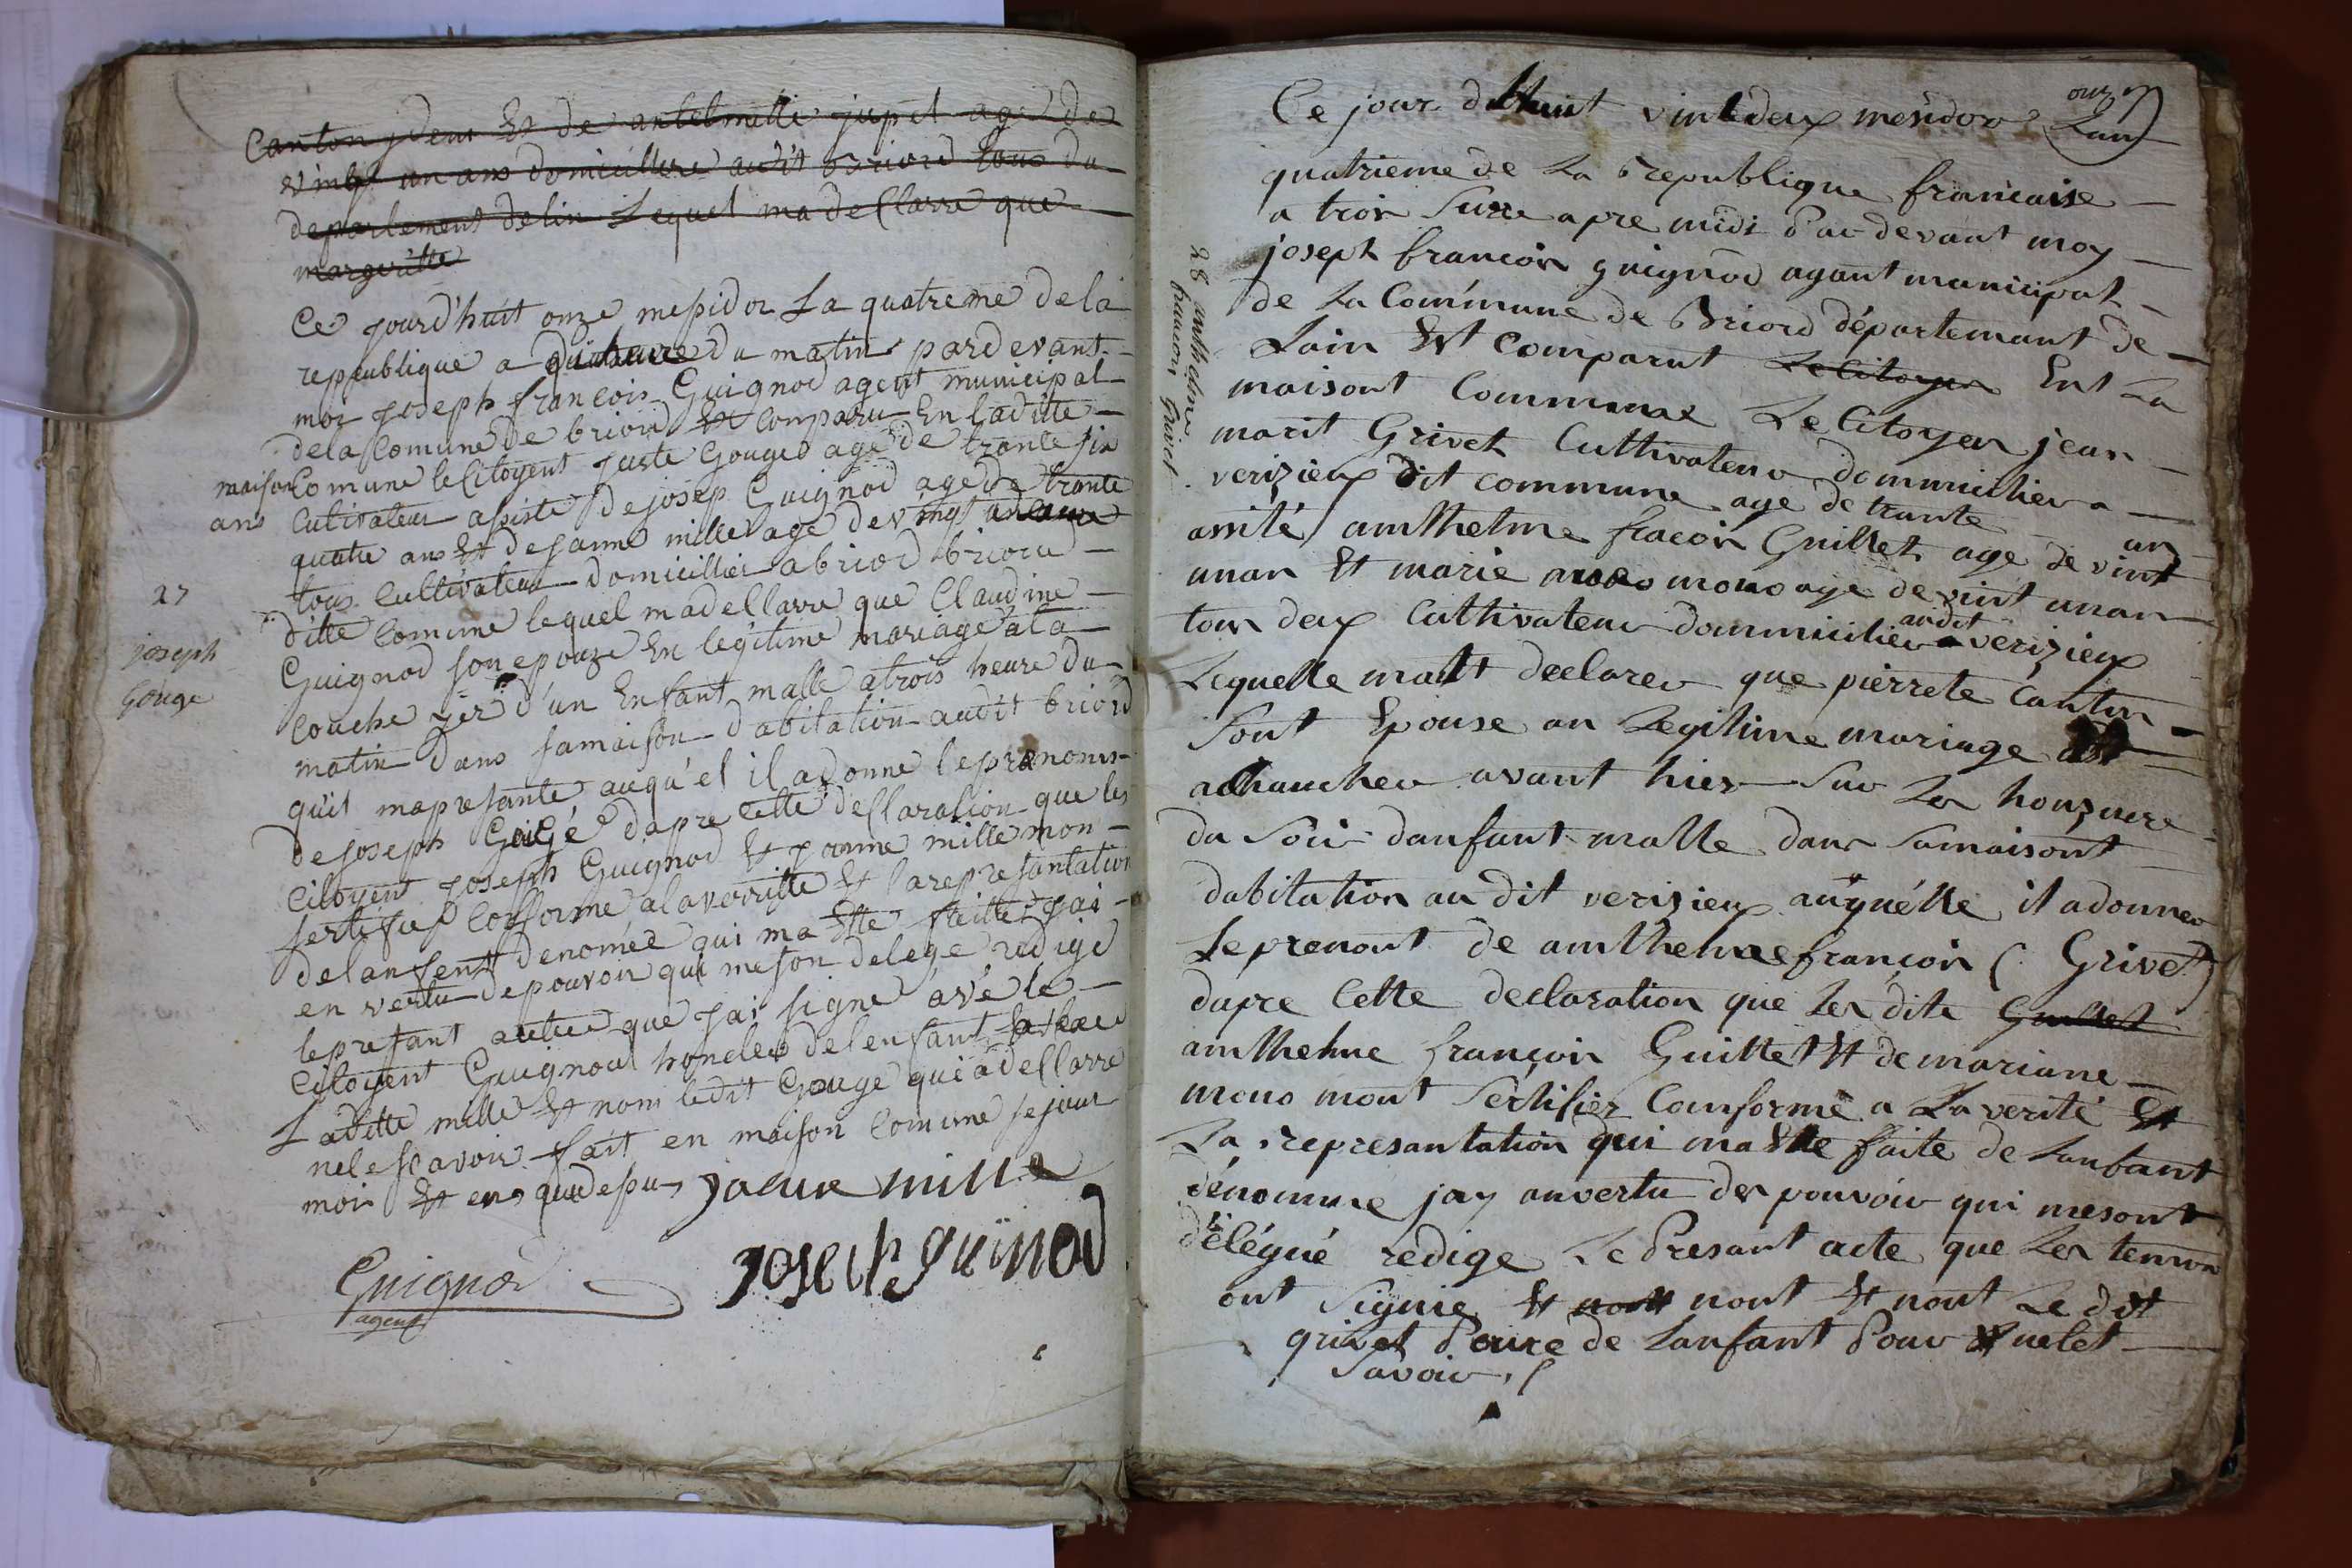 Canton ydem Et de antelmille jupet agé de
vingt un ans domicillere audit Briord tous du
departement delin Lequel ma deClarre que
margeritte
Ce jourd'huit onze mesidor La quatreme de la
reppublique a du matin pardevant
moi joseph francois Guignod agent municipal
dela Comune de briord Et Comparu En laditte
maison Comune le Citoyent juste Gouged agé de trante six
ans Cutivateur asiste de josep Guignod age de trante
quatre ans Et de janne mille age de vingt
tous Cultivateur domicillies a briord briord
27
ditte Comune lequel ma dellarre que Claudine
joseph
Gouge
Guignod son epouze En legitime mariage a la
Couche yer d'un Enfant malle a trois heure du
matin dans samaison d'abitation audit briord
qu'il mapresante auqu'el il a donne leprenoms
de joseph Gougé dapre cette deClaration que les
Citoyent joseph Guignod Et janne mille mon
sertifies Conforme alaveritte Et lareprésantation
delanfent denomée qui ma Ette faitte jai
en vertu depouvoir qui meson delege redige
lepresant actue que jai signe avé le
Citoyent Guignod honcles delenfant
Laditte mille Et nom ledit Gouge qui a dellarre
nele scavoir fait en maison Comune se jour
mois Et en que desus jaenne mille
Guignod
agent
joseph guinod
Ce jour dhuit vint deux mesidor Lan
quatrieme de La republique francaise
a trois Surre apre midi Par devant moy
joseph francois guignod agant municipal
de La Commune de Briord département de
Lain Est comparut Le Citoyen Ent La
maisont Commune Le Citoyen jean
28 anthelme
francois Grivet
marit Grivet Cultivateur dommicilier a
verizieux dit commune age de trante an
asité amthelme fracois Guillet age de vint
unan Et marie mono age de vint unan
tous deux Cultivateur dommicilier audit verizieux
Lequelle matt declarer que pierrete Canton
Sont Epouse an Legitime mariage
achaucher avant hier Sur Les honzuere
du Soir danfant malle dans Samaisont
dabitation au dit verizieux auquélle il adonner
Le prenont de amthelme françois ( Grivet )
dapre Cette declaration que Les dite Guillet
amthelme françois Guillet Et de mariane
mono mont Sertifiez Comforme a La verité Et
La represantation qui ma Ette faite de Lanfant
dénomme jay anvertu des pouvoir qui mesont
délégué redige Le Presant acte que Les temoin
ont Signie Et nont Et nont Le dit
grivet Perre de Lanfant Pour nelet
Savoir